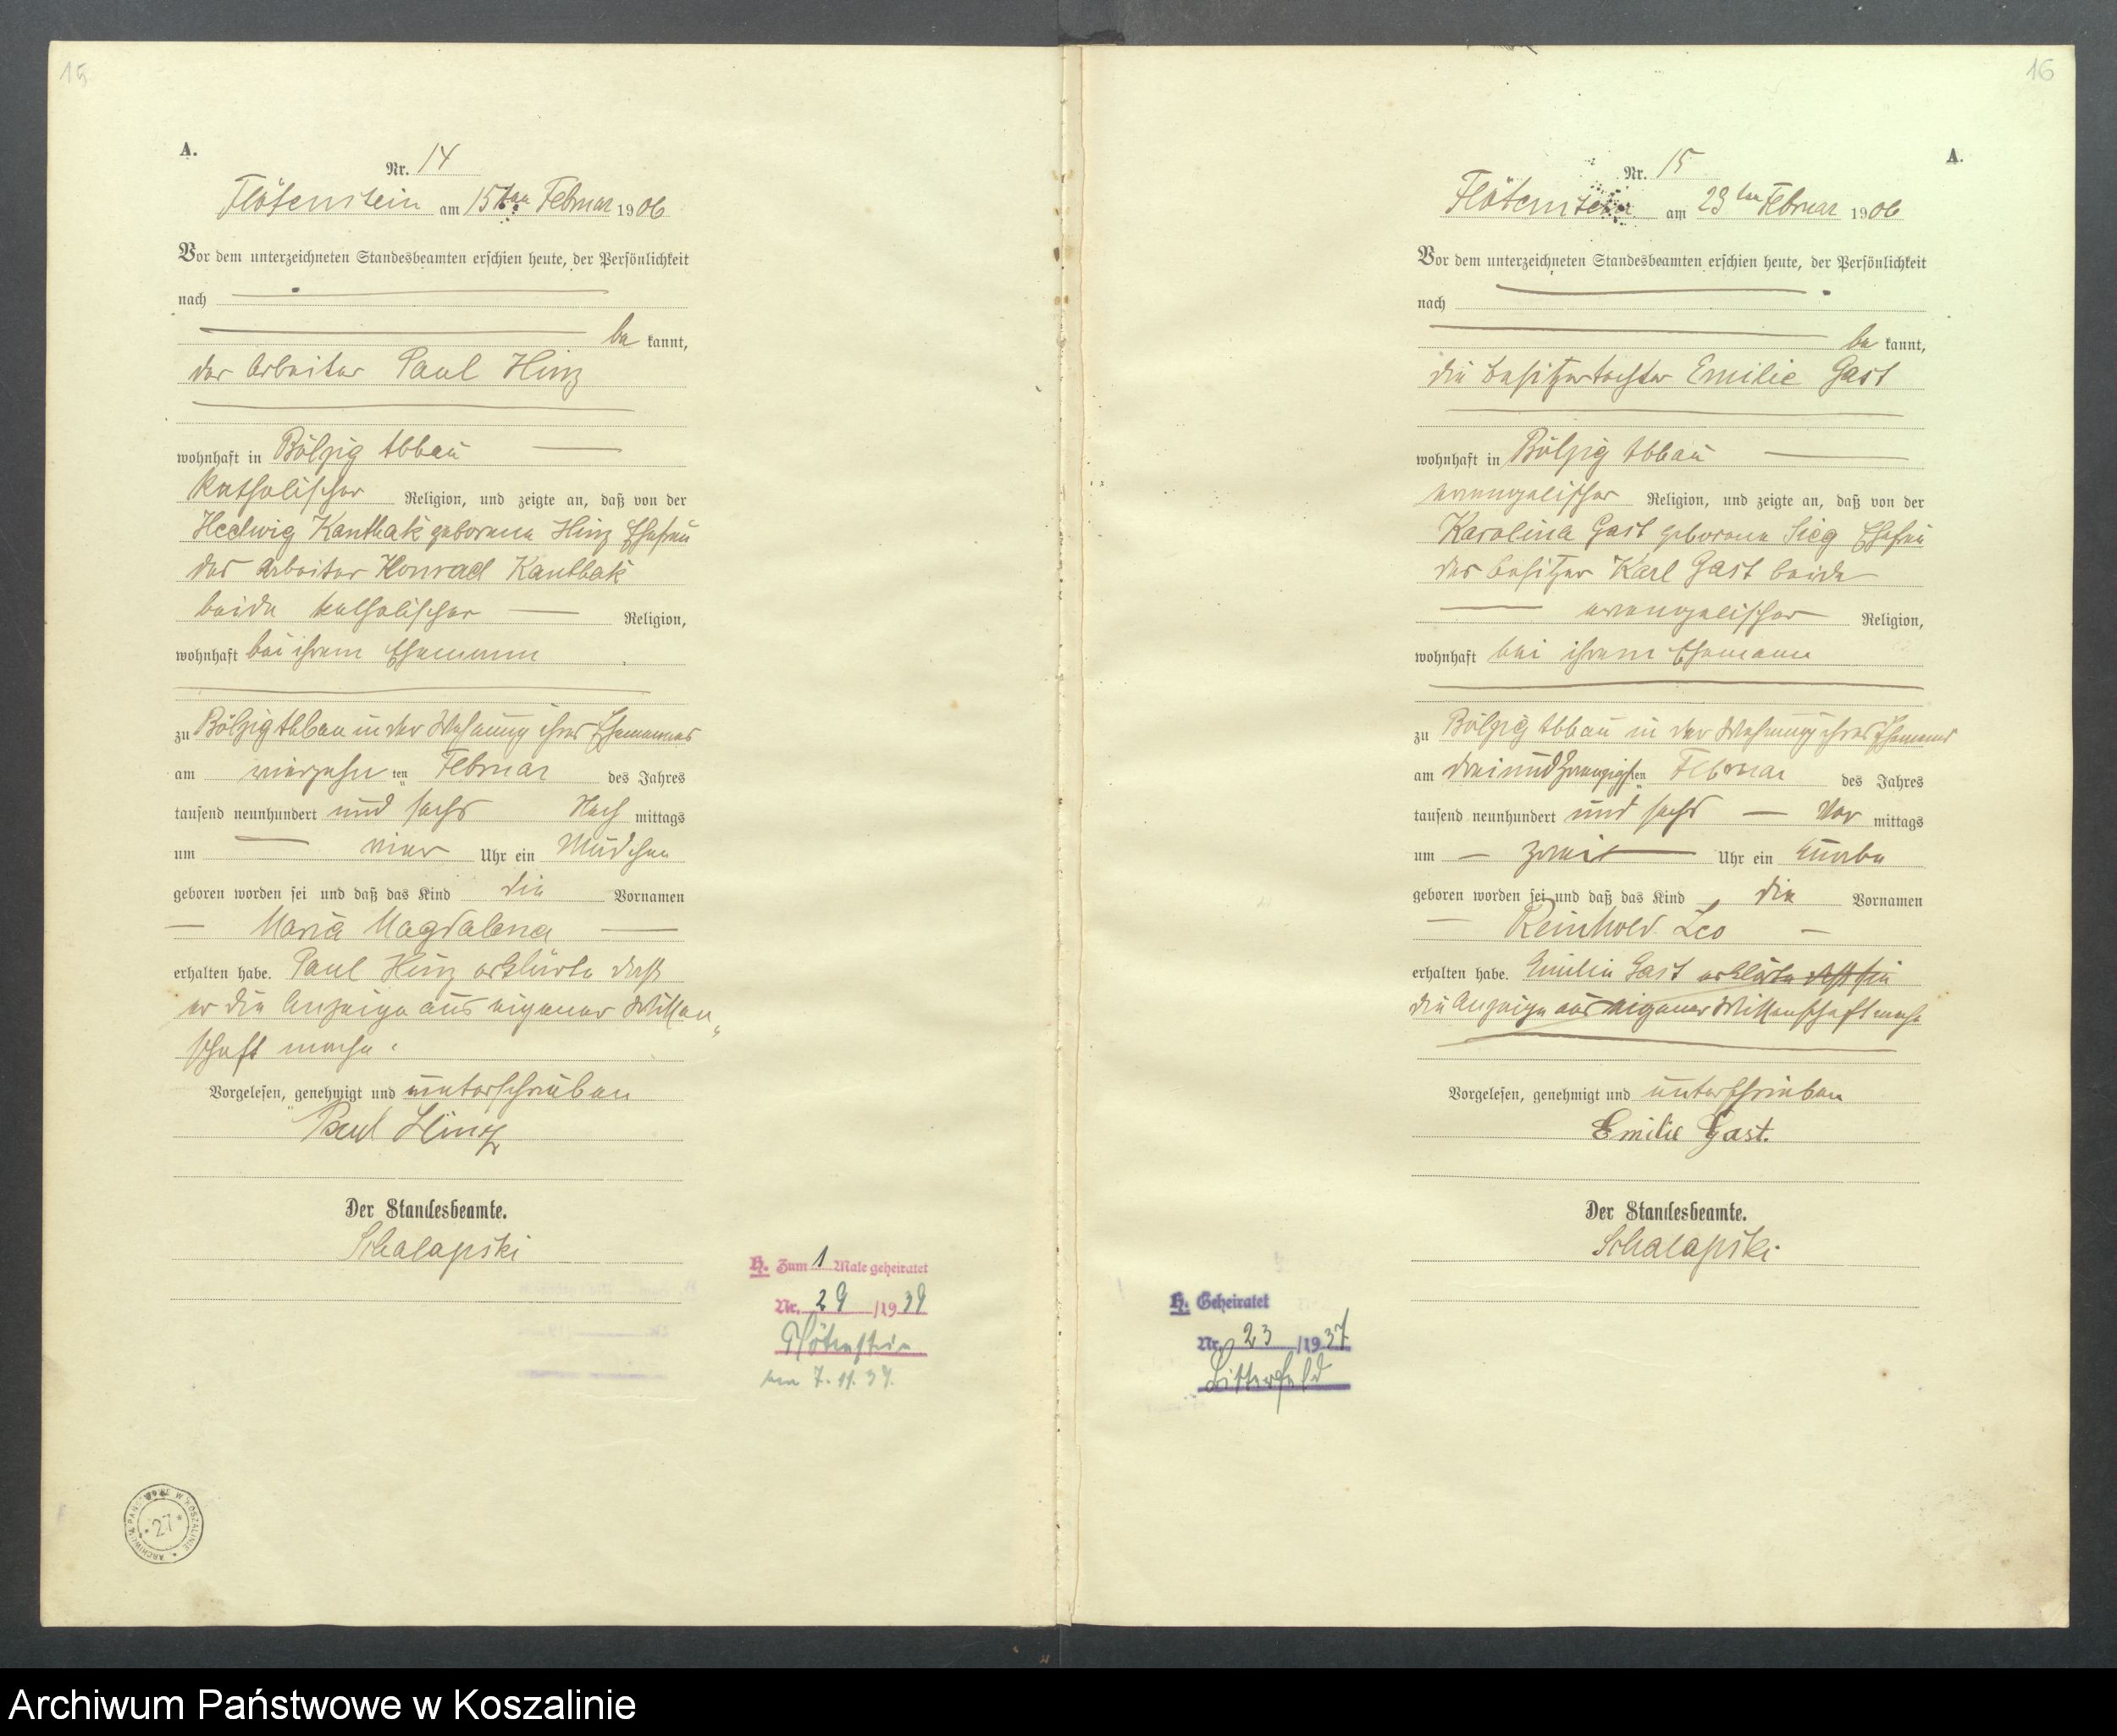 15
A.
Nr. 14
Flötenstein am 15ten Februar 1906
Vor dem unterzeichneten Standesbeamten erschien heute, der Persönlichkeit
nach
be kannt,
der Arbeiter Paul Hinz
wohnhaft in Bölzig Abbau
katholischer Religion, und zeigte an, daß von der
Hedwig Kanthak geborene Hinz Ehefrau
des Arbeiter Konrad Kanthak
beide katholischer Religion,
wohnhaft bei ihrem Ehemann
zu Bölzig Abbau in der Wohnung ihres Ehemannes
am vierzehn ten Februar des Jahres
tausend neunhundert und sechs Nach mittags
um vier Uhr ein Mädchen
geboren worden sei und daß das Kind die Vornamen
Maria Magdalena
erhalten habe. Paul Hinz erklärte daß
er die Anzeige aus eigener Wissen„
schaft mache.
Vorgelesen, genehmigt und unterschrieben
Paul Hinz
Der Standesbeamte.
Schalapski
H. Zum 1 Male geheiratet
Nr. 29 /1939
Flötenstein
7. 11. 39.
ARCHIWUM PAŃSTWOWE W KOSZALINIE
* 27 *
16
A.
Nr. 15
Flötenstein am 23ten Februar 1906
Vor dem unterzeichneten Standesbeamten erschien heute, der Persönlichkeit
nach
be kannt,
die Besitzertochter Emilie Gast
wohnhaft in Bölzig Abbau
evangelischer Religion, und zeigte an, daß von der
Karolina Gast geborene Sieg Ehefrau
des Besitzer Karl Gast beide
evangelischer Religion,
wohnhaft bei ihrem Ehemann
zu Bölzig Abbau in der Wohnung ihres Ehemanns
am dreiundzwanzigsten Februar des Jahres
tausend neunhundert und sechs Vor mittags
um zwei Uhr ein Knabe
geboren worden sei und daß das Kind die Vornamen
Reinhold Leo
erhalten habe. Emilie Gast erklärte daß sie
die Anzeige aus eigener Wissenschaft mache
Vorgelesen, genehmigt und unterschrieben
Emilie Gast.
Der Standesbeamte.
Schalapski.
H. Geheiratet
Nr. 23 /1937
Bitterfeld
Archiwum Państwowe w Koszalinie